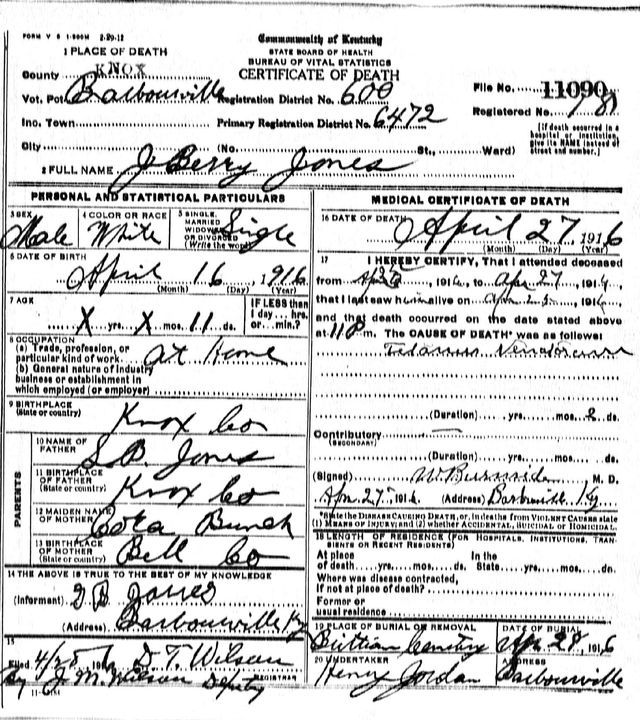 FORM V S 1-500M 2-29-12
Commonwealth of Kentucky
STATE BOARD OF HEALTH
BUREAU OF VITAL STATISTICS
CERTIFICATE OF DEATH
1 PLACE OF DEATH
County KNOX
Vot. Pct. Barbourville Registration District No. 600
Inc. Town Primary Registration District No. 6472
City (No. St., Ward)
File No. 11090
Registered No. 181
[If death occurred in a hospital or institution, give its NAME instead of street and number.]
2 FULL NAME J Berry Jones
PERSONAL AND STATISTICAL PARTICULARS
3 SEX Male
4 COLOR OR RACE White
5 SINGLE, MARRIED WIDOWED OR DIVORCED (Write the word) Single
6 DATE OF BIRTH April 16 1916
(Month) (Day) (Year)
7 AGE X yrs. X mos. 11 ds.
IF LESS than 1 day ... hrs. or ... min.?
8 OCCUPATION
(a) Trade, profession, or particular kind of work At Home
(b) General nature of industry business or establishment in which employed (or employer)
9 BIRTHPLACE (State or country) Knox Co
PARENTS
10 NAME OF FATHER S. B. Jones
11 BIRTHPLACE OF FATHER (State or country) Knox Co
12 MAIDEN NAME OF MOTHER Cora Bunch
13 BIRTHPLACE OF MOTHER (State or country) Bell Co
14 THE ABOVE IS TRUE TO THE BEST OF MY KNOWLEDGE
(Informant) B Jones
(Address) Barbourville Ky
15
Filed 4/28 1916 T. Wilson
REGISTRAR
By J. M. Wilson Deputy
MEDICAL CERTIFICATE OF DEATH
16 DATE OF DEATH April 27 1916
(Month) (Day) (Year)
17 I HEREBY CERTIFY, That I attended deceased
from Apr 26 1916, to Apr 27 1916
that I last saw him alive on Apr 1916,
and that death occurred on the date stated above
at 11 P m. The CAUSE OF DEATH* was as follows:
Tetanus
(Duration) yrs. mos. 2 ds.
Contributory (SECONDARY)
(Duration) yrs. mos. ds.
(Signed) W Burnside M. D.
Apr. 27 1916 (Address) Barbourville Ky
*State the DISEASE CAUSING DEATH, or, in deaths from VIOLENT CAUSES state (1) MEANS OF INJURY; and (2) whether ACCIDENTAL, SUICIDAL or HOMICIDAL.
18 LENGTH OF RESIDENCE (FOR HOSPITALS, INSTITUTIONS, TRANSIENTS OR RECENT RESIDENTS)
At place of death yrs. mos. ds. In the State yrs. mos. ds.
Where was disease contracted, if not at place of death?
Former or usual residence
19 PLACE OF BURIAL OR REMOVAL Brittian Cemetry
DATE OF BURIAL Apr 28, 1916
20 UNDERTAKER Henry Jordan
ADDRESS Barbourville